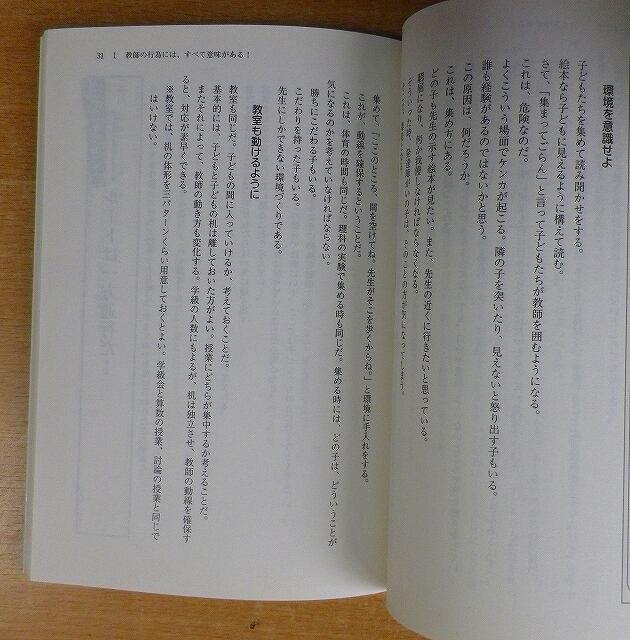 環境を意識せよ
子どもたちを集めて読み聞かせをする。
絵本なら子どもに見えるように構えて読む。
さて、「集まってごらん」と言って子どもたちが教師を囲むようになる。
これは、危険なのだ。
よくこういう場面でケンカが起こる。隣の子を突いたり、見えないと怒り出す子もいる。
誰も経験があるのではないかと思う。
この原因は、何だろうか。
これは、集め方にある。
どの子も先生の示す絵本が見たい。また、先生の近くに行きたいと思っている。
窮屈になり、何か我慢しなければならなくなる。
そういった時、発達障がいの子は、そのことの方が気になってしまう。
31 Ⅰ 教師の行為には、すべて意味がある!
集めて、「ここのところ、間を空けてね。先生がそこを歩くからね。」と環境に手入れをする。
これが、動線を確保するということだ。
これは、体育の時間も同じだ。理科の実験で集める時も同じだ。集める時には、どの子は、どういうことが
気になるのかを考えていなければならない。
勝ちにこだわる子もいる。
こだわりを持った子もいる。
先生にしかできない環境づくりである。
教室も動けるように
教室も同じだ。子どもの間に入っていけるか、考えておくことだ。
基本的には、子どもと子どもの机は離しておいた方がよい。授業にどちらが集中するか考えることだ。
またそれによって、教師の動き方も変化する。学級の人数にもよるが、机は独立させ、教師の動線を確保す
ると、対応が素早くできる。
※教室では、机の体形を三パターンくらい用意しておくとよい。学級会と算数の授業、討論の授業と同じで
はいけない。